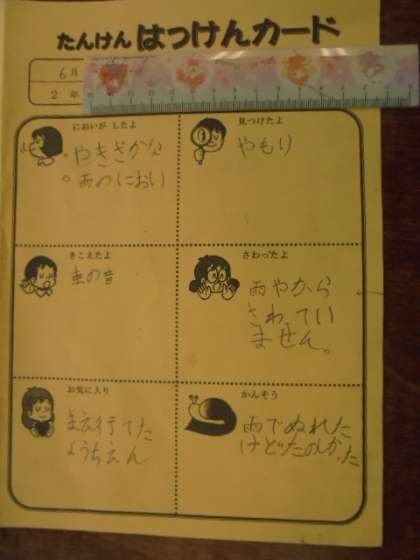 たんけん はっけんカード
6月
2年
においが したよ
。やきざかな
。雨のにおい
見つけたよ
やもり
きこえたよ
車の音
さわったよ
雨やから
さわってい
ません。
お気に入り
まえ行てた
ようちえん
かんそう
雨でぬれた
けどたのしかった